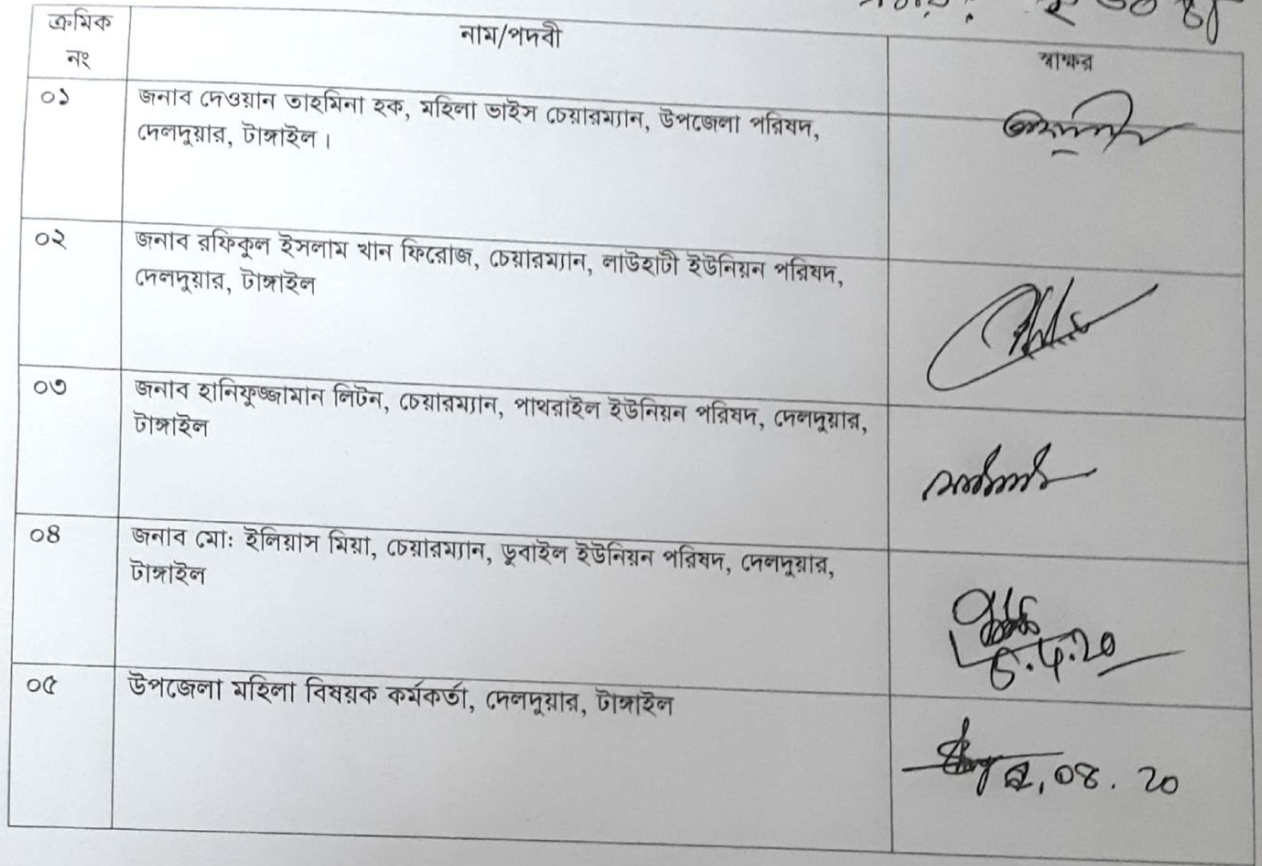 ক্রমিক
নং
নাম/পদবী
স্বাক্ষর
০১
জনাব দেওয়ান তাহমিনা হক, মহিলা ভাইস চেয়ারম্যান, উপজেলা পরিষদ,
দেলদুয়ার, টাঙ্গাইল।
০২
জনাব রফিকুল ইসলাম খান ফিরোজ, চেয়ারম্যান, লাউহাটী ইউনিয়ন পরিষদ,
দেলদুয়ার, টাঙ্গাইল
০৩
জনাব হানিফুজ্জামান লিটন, চেয়ারম্যান, পাথরাইল ইউনিয়ন পরিষদ, দেলদুয়ার,
টাঙ্গাইল
০৪
জনাব মো: ইলিয়াস মিয়া, চেয়ারম্যান, ডুবাইল ইউনিয়ন পরিষদ, দেলদুয়ার,
টাঙ্গাইল
০৫
উপজেলা মহিলা বিষয়ক কর্মকর্তা, দেলদুয়ার, টাঙ্গাইল